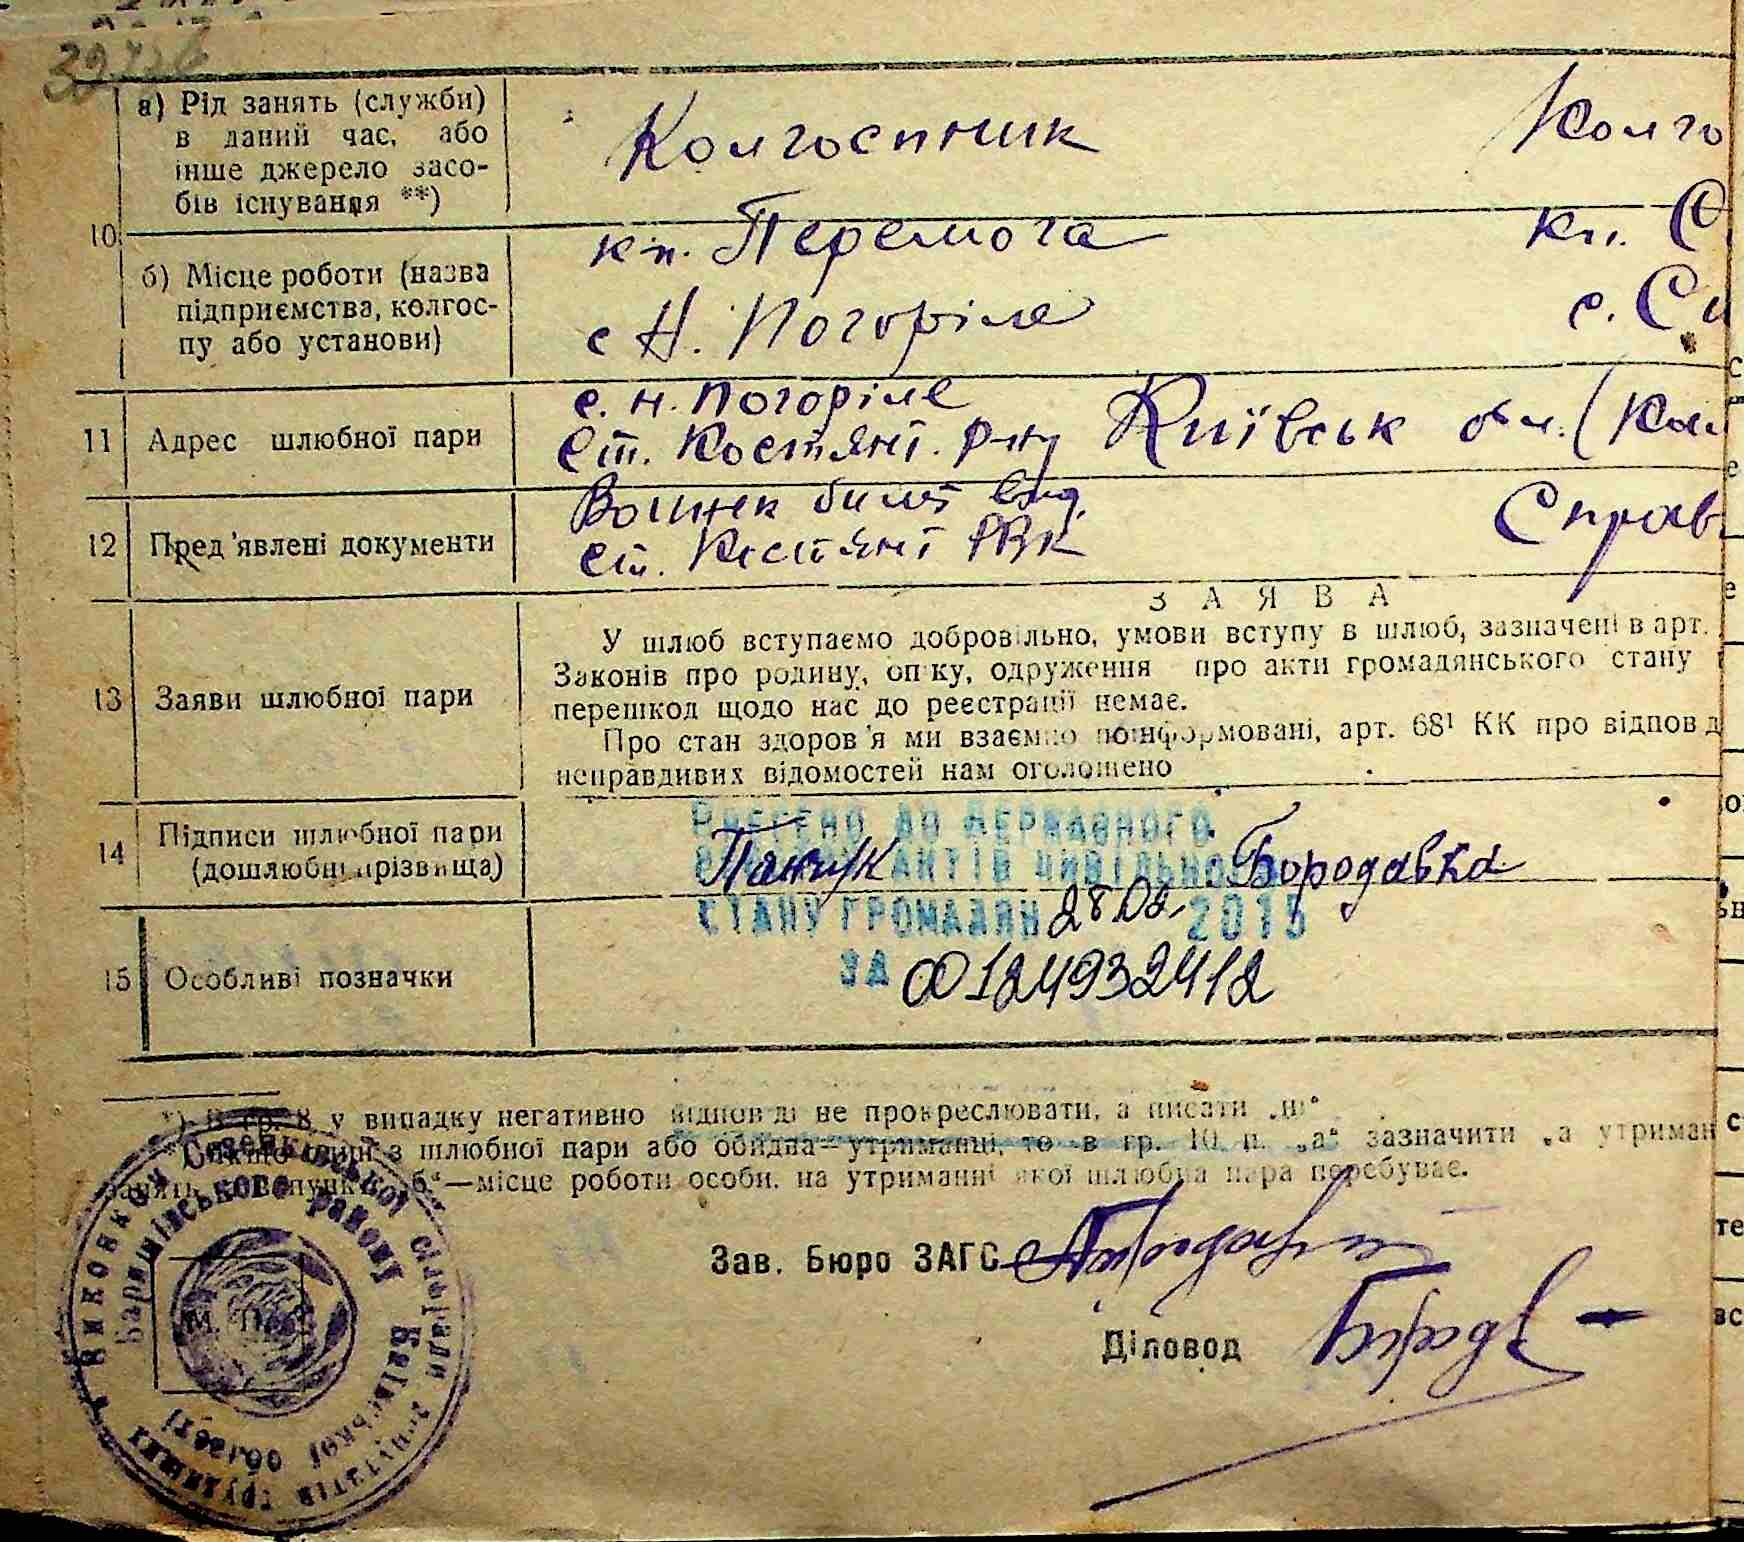 10
а) Рід занять (служби)
в даний час, або
інше джерело засо-
бів існування **)
Колгоспник
Колго
б) Місце роботи (назва
підприємства, колгос-
пу або установи)
кп. Перемога
кп. С
с Н. Погоріле
с. Си
11 Адрес шлюбної пари
с. Н. Погоріле
Ст. Костянт. р-ну Київськ обл. (Кол
12 Пред'явлені документи
Воинск билет вид.
Ст. Костянт РВК
Справ
13 Заяви шлюбної пари
ЗАЯВА
У шлюб вступаємо добровільно, умови вступу в шлюб, зазначені в арт.
Законів про родину, опіку, одруження про акти громадянського стану
перешкод щодо нас до реєстрації немає.
Про стан здоров'я ми взаємно поінформовані, арт. 68¹ КК про відповід
неправдивих відомостей нам оголошено
14 Підписи шлюбної пари
(дошлюбні прізвища)
Бородавка
ВНЕСЕНО ДО ДЕРЖАВНОГО
АКТІВ ЦИВІЛЬНОГО
СТАНУ ГРОМАДЯН 28.02. 2015
ЗА 00124932412
15 Особливі позначки
*) В гр. 8 у випадку негативно відповіді не прокреслювати, а писати „ні“.
з шлюбної пари або обидва—утриманці, то в гр. 10 п. „а“ зазначити „а утриман
б“—місце роботи особи, на утриманні якої шлюбна пара перебуває.
Зав. Бюро ЗАГС
Діловод
М. П.
Виконком Сезенківської сільради депутатів трудящих
Баришівського району Київської області